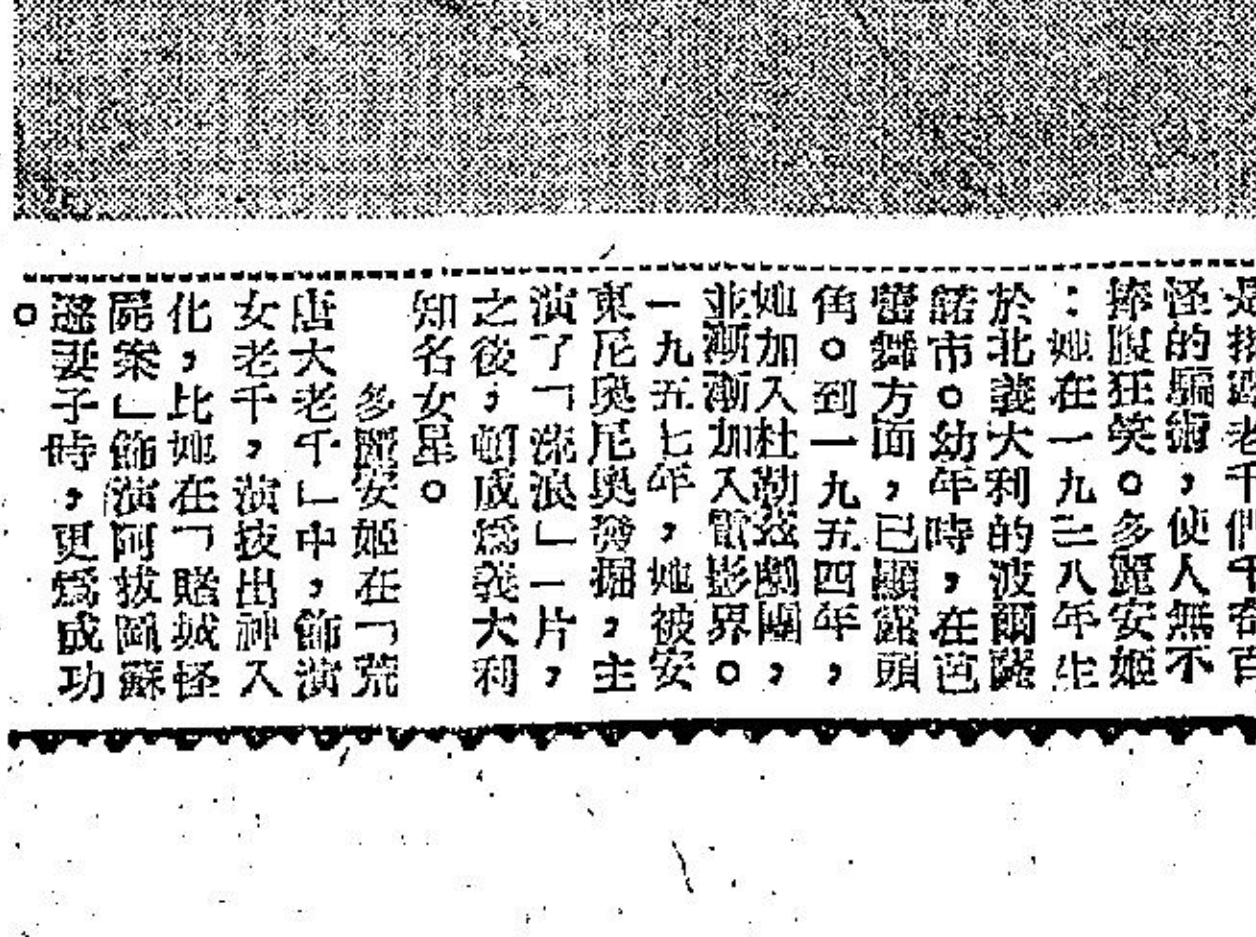 是描寫老千們千奇百
怪的騙術，使人無不
捧腹狂笑。多麗安姬
：她在一九三八年生
於北義大利的波爾薩
諾市。幼年時，在芭
蕾舞方面，已顯露頭
角。到一九五四年，
她加入杜勒茲劇團，
並漸漸加入電影界。
一九五七年，她被安
東尼奧尼奧發掘，主
演了「流浪」一片，
之後，頓成爲義大利
知名女星。
多麗安姬在「荒
唐大老千」中，飾演
女老千，演技出神入
化，比她在「賭城怪
屍案」飾演阿拔圖蘇
遜妻子時，更爲成功
。